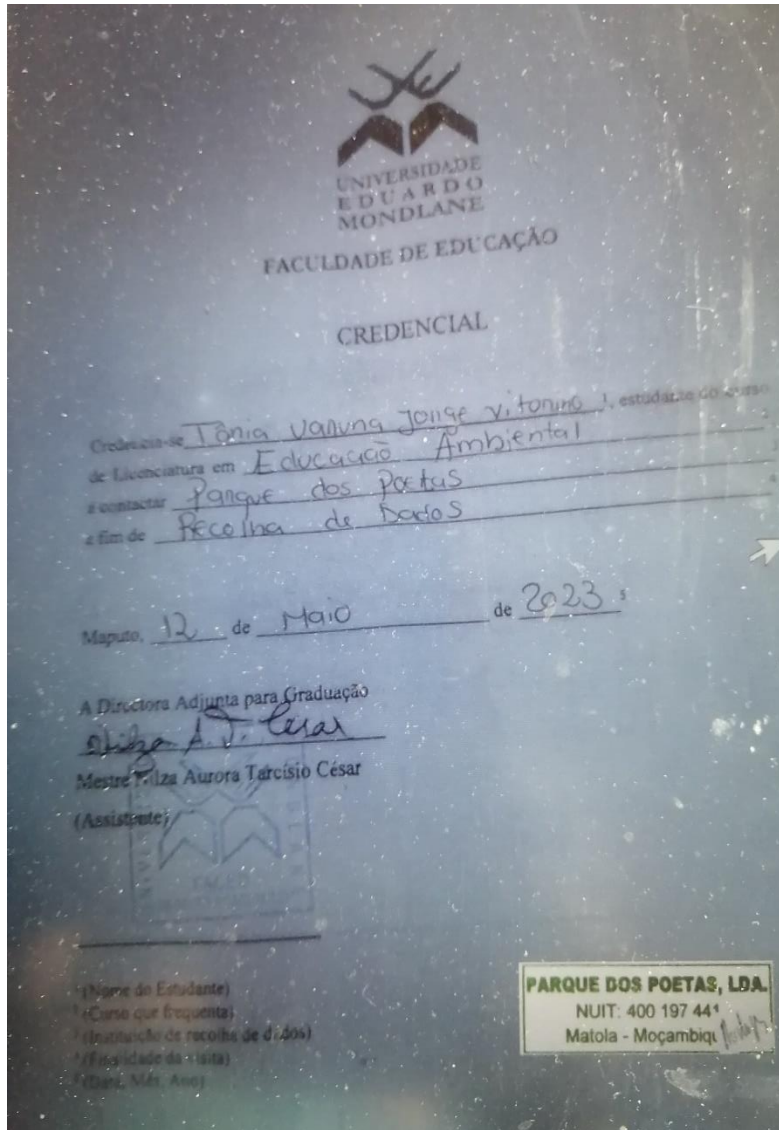 UNIVERSIDADE
EDUARDO
MONDLANE
FACULDADE DE EDUCAÇÃO
CREDENCIAL
Credencia-se Tânia Vanuna Jonge Vitorino 1, estudante do curso
de Licenciatura em Educação Ambiental 2
a contactar Parque dos Poetas 3
a fim de Recolha de Dados 4
Maputo, 12 de Maio de 2023 5
A Directora Adjunta para Graduação
Nilza A. T. César
Mestre Nilza Aurora Tarcísio César
(Assistente)
1 (Nome do Estudante)
2 (Curso que frequenta)
3 (Instituição de recolha de dados)
4 (Finalidade da visita)
5 (Data, Mês, Ano)
PARQUE DOS POETAS, LDA.
NUIT: 400 197 441
Matola - Moçambiqu